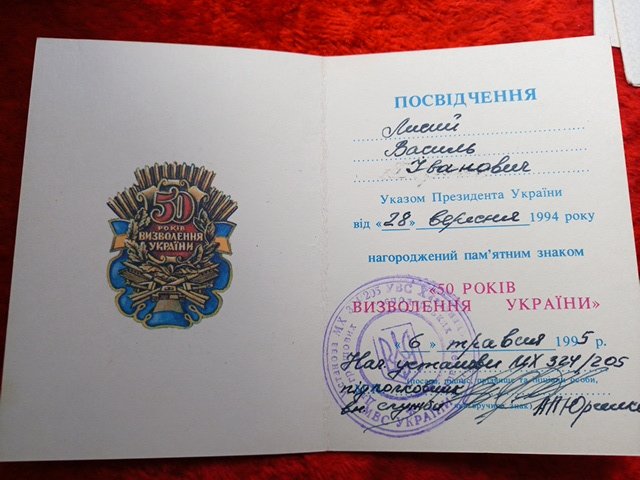 50
РОКІВ
ВИЗВОЛЕННЯ
УКРАЇНИ
ПОСВІДЧЕННЯ
Лисий
Василь
Іванович
Указом Президента України
від «28» вересня 1994 року
нагороджений пам'ятним знаком
«50 РОКІВ
ВИЗВОЛЕННЯ УКРАЇНИ»
«6» травня 1995 р.
Нач установи МХ 324/205
підполковник
вн служби
МВС УКРАЇНИ